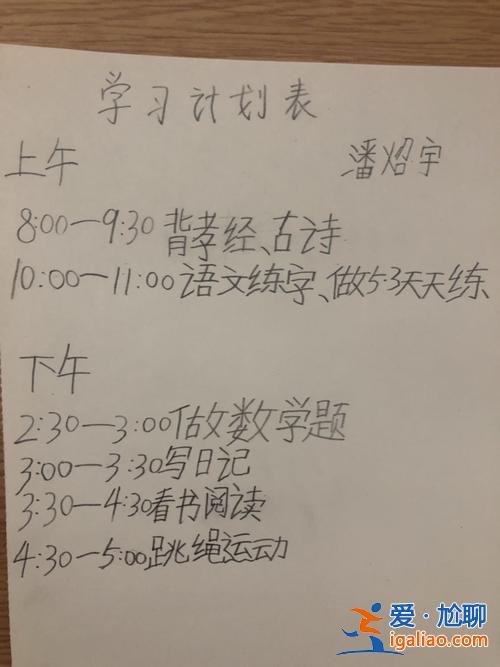 学习计划表
上午 潘炤宇
8:00—9:30 背孝经、古诗
10:00—11:00 语文练字、做5·3天天练
下午
2:30—3:00 做数学题
3:00—3:30 写日记
3:30—4:30 看书阅读
4:30—5:00 跳绳运动
爱·尬聊
igaliao.com